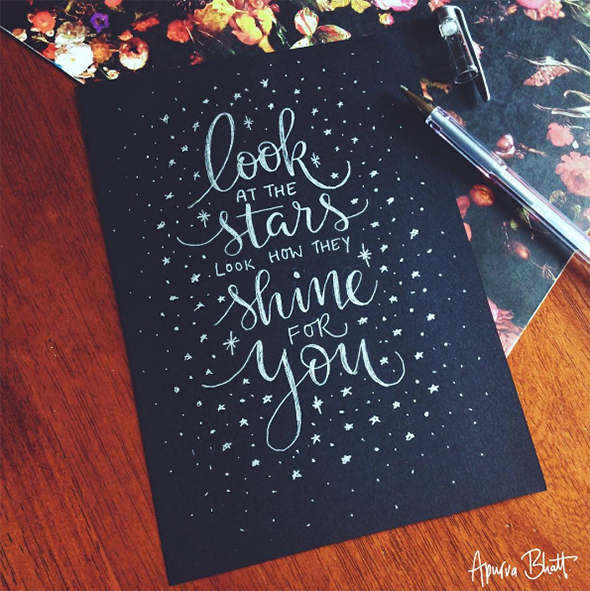 look
AT THE
stars
LOOK HOW THEY
shine
FOR
you
Apurva Bhatt